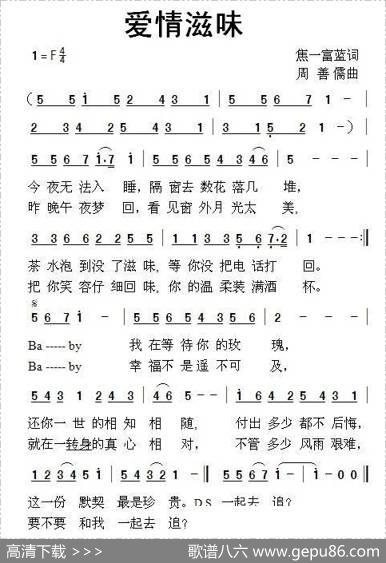 爱情滋味
1=F 4/4
焦一富蓝词
周善儒曲
(5 5 i 5 2 4 3 1 | 5 5 6 7 i - |
2 3 4 2 4 5 4 3 | 5 5 6 7 1 - ) |
5 5 6 7 i·7 i | 5 6 5 4 5 4 3 4 6 | 5 - - - |
今夜无法入睡,隔窗去数花落几堆,
昨晚午夜梦回,看见窗外月光太美,
3 3 6 6 2 2 5 5 | 1 3 3 3 5 6 7·2 | 1 - - - :||
茶水泡到没了滋味,等你没把电话打回。
把你笑容仔细回味,你的温柔装满酒杯。
5 6 7 i - | 6 5 4 5 3 5 6 | 2 - - - |
Ba ----- by 我在等待你的玫瑰,
Ba ----- by 幸福不是遥不可及,
5 4 3 1 2 4 3 | 4 6 5 - - | 6 4 2 1 2 5 4 3 1 |
还你一世的相知相随, 付出多少都不后悔,
就在一转身的真心相对, 不管多少风雨艰难,
1 2 3 4 5 1 | 2 4 3 2 1 - :|| 5 5 6 7 i - | i - 0 0 ||
这一份默契最是珍贵。D.S.一起去追?
要不要和我一起去追?
高清下载 >>>
歌谱八六 www.gepu86.com